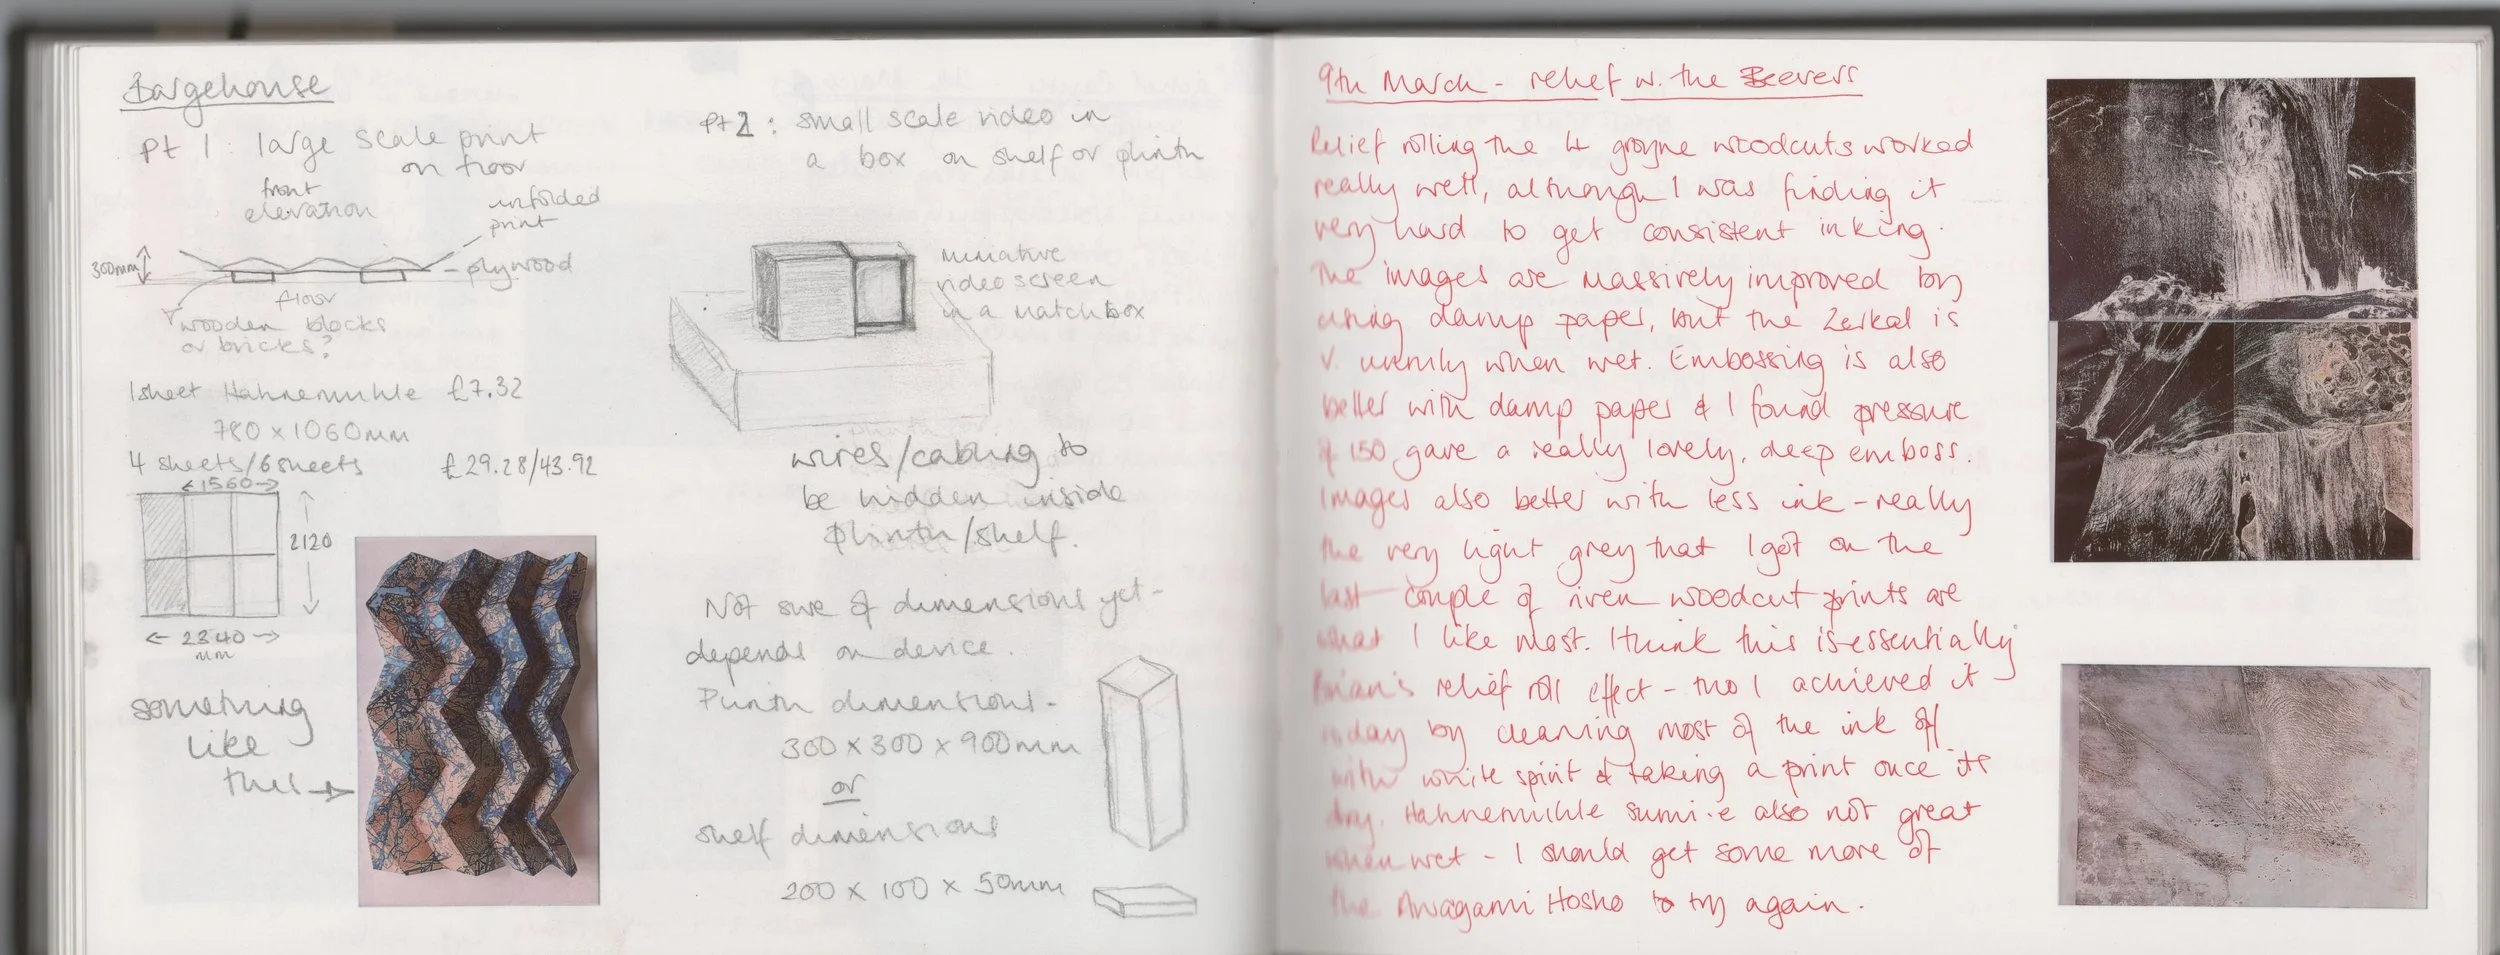 Bargehouse
Pt 1: large scale print
on floor
front
elevation
unfolded
print
300mm
plywood
floor
wooden blocks
or bricks?
1 sheet Hahnemuhle £7.32
780 x 1060mm
4 sheets/6 sheets £29.28/43.92
1560
2120
2340
mm
something
like
this
Pt 2: small scale video in
a box on shelf or plinth
miniature
video screen
in a matchbox
wires/cabling to
be hidden inside
plinth/shelf.
Not sure of dimensions yet -
depends on device.
Plinth dimensions -
300 x 300 x 900mm
or
shelf dimensions
200 x 100 x 50mm
9th March - relief w. the Beevers
Relief rolling the 4 groyne woodcuts worked
really well, although I was finding it
very hard to get consistent inking.
The images are massively improved by
using damp paper, but the Zerkal is
v. unruly when wet. Embossing is also
better with damp paper & I found pressure
of 150 gave a really lovely, deep emboss.
Images also better with less ink - really
the very light grey that I got on the
last couple of riven woodcut prints are
what I like most. I think this is essentially
Brian's relief roll effect - tho I achieved it
today by cleaning most of the ink off
with white spirit & taking a print once its
dry. Hahnemuhle sumi-e also not great
when wet - I should get some more of
the Awagami Hosho to try again.